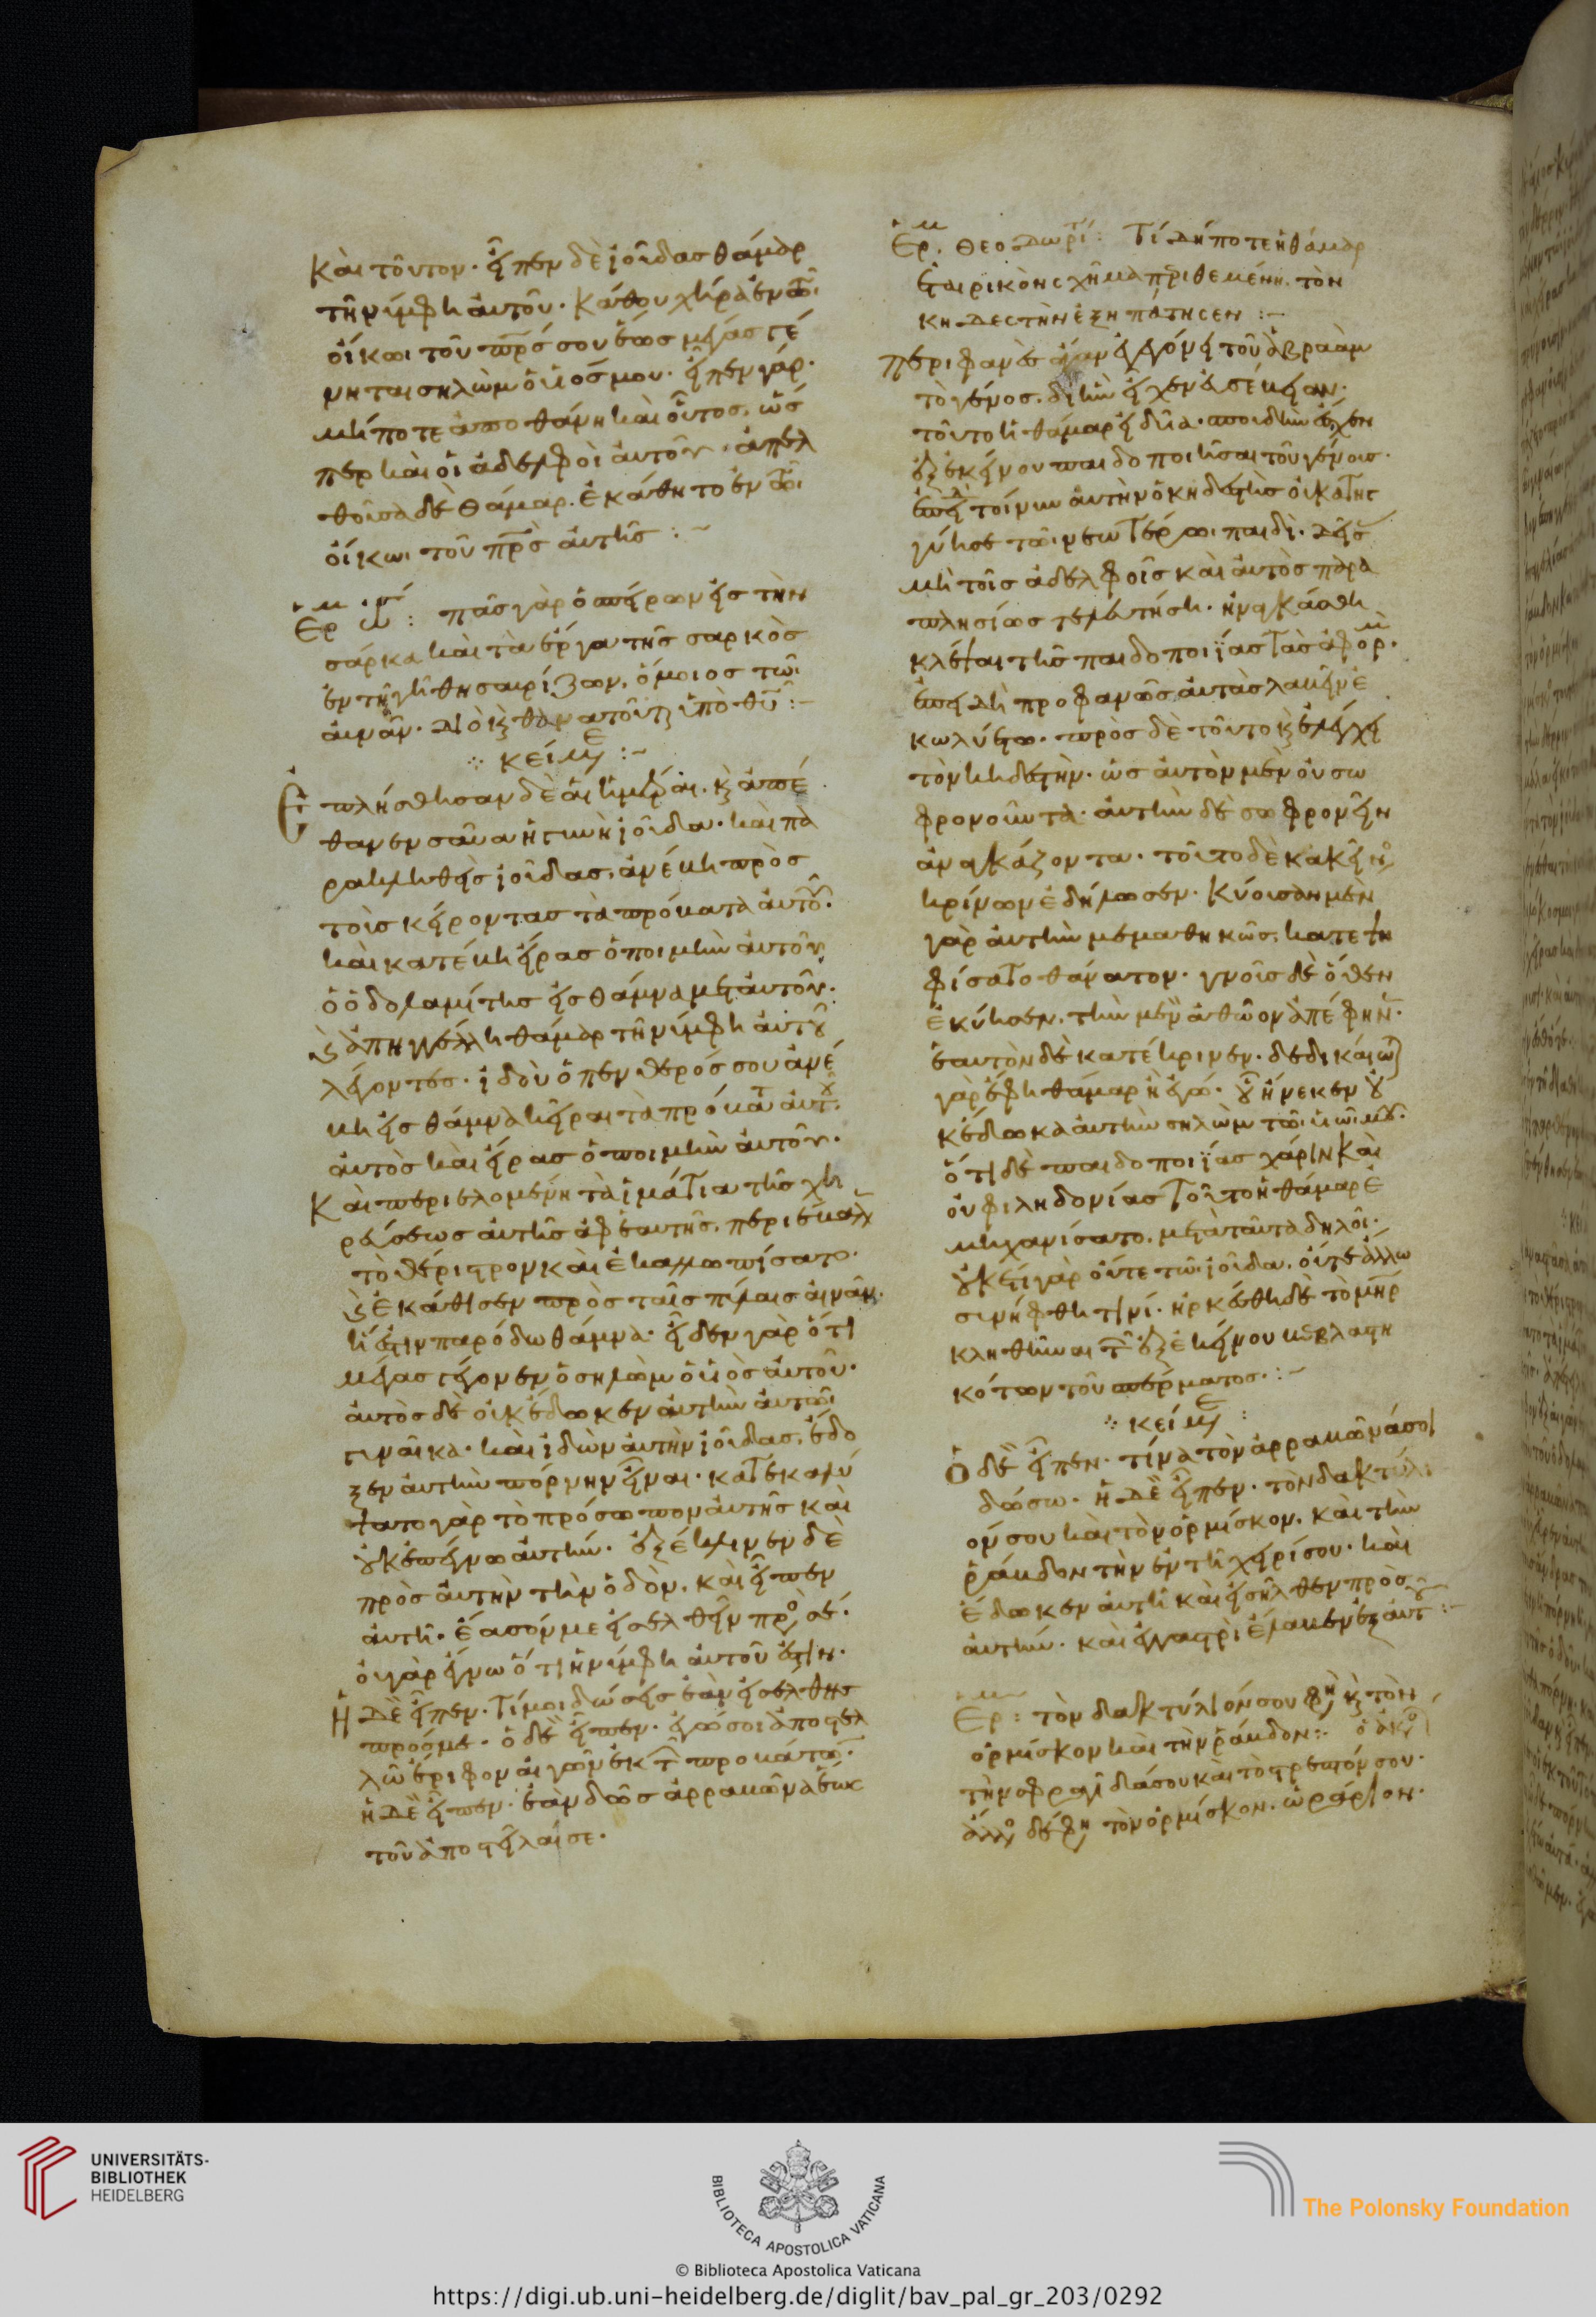 καὶ τοῦτον· εἶπεν δὲ ἰούδας θάμαρ
τῆ νύμφη αὐτοῦ· κάθου χήρα ἐν τῶι
οἴκωι τοῦ πρς σου ἕως μέγας γέ
νηται σηλὼμ ὁ υἱός μου· εἶπεν γάρ·
μήποτε ἀποθάνη καὶ οὗτος, ὥσ
περ καὶ οἱ ἀδελφοὶ αὐτοῦ· ἀπελ
θοῦσα δὲ θάμαρ. ἐκάθητο ἐν τῶι
οἴκωι τοῦ πρς αὐτῆς :~
πᾶς γὰρ ὁ σπείρων εἰς τὴν
σάρκα καὶ τὰ ἔργα τῆς σαρκὸς
ἐν τῆ γῆ θησαυρίζων, ὅμοιος τῶι
αὐνάν· διὸ κ θανατοῦτ ὑπὸ θυ :~
κείμ :~
Ἐπλήσθησαν δὲ αἱ ἡμέραι. κ ἀπέ
θανεν σαῦα ἡ γυνὴ ἰούδα· καὶ πα
ρακληθεὶς ἰούδας, ἀνέβη πρὸς
τοὺς κείροντας τὰ πρόβατα αὐτοῦ·
καὶ εἰράς ὁ ποιμὴν αὐτοῦ
ὁ ὀδολαμίτης εἰς θάμνα μετ αὐτοῦ·
κ ἀπηγγέλη θάμαρ τῆ νύμφη αὐτου
λέγοντες· ἰδοὺ ὁ πενθερός σου ἀνέ
βη εἰς θάμνα κεῖραι τὰ πρόβατ αὐτ.
αὐτὸς καὶ εἰρὰς ὁ ποιμὴν αὐτοῦ·
Καὶ περιελομένη τὰ ἱμάτια τῆς χη
ρεύσεως αὐτῆς ἀφ ἑαυτῆς, περιεβαλ
τὸ θέριστρον καὶ ἐκαλλωπίσατο·
κ ἐκάθισεν πρὸς ταῖς πύλαις αἰνάν·
ἥ ἐστιν παρόδω θάμνα· εἶδεν γὰρ ὅτι
μέγας γέγονεν ὁ σηλὼμ ὁ υἱὸς αὐτοῦ·
αὐτὸς δὲ οὐκ ἔδωκεν αὐτὴν αὐτῶι
γυναῖκα· καὶ ἰδὼν αὐτὴν ἰούδας, ἔδο
ξεν αὐτὴν πόρνην εἶναι· κατεκαλύ
ψατο γὰρ τὸ πρόσωπον αὐτῆς καὶ
οὐκ ἐπέγνω αὐτήν. ἐξέκλινεν δὲ
πρὸς αὐτὴν τὴν ὁδὸν, καὶ εἶπεν
αὐτῆ· ἔασόν με εἰσελθεῖν πρ σέ·
οὐ γὰρ ἔγνω ὅτι ἡ νύμφη αὐτοῦ ἐστιν·
Ἡ δὲ εἶπεν· τί μοι δώσεις ἐὰν εἰσέλθης
πρός με· ὁ δὲ εἶπεν· ἐγώ σοι ἀποστελ
λῶ ἔριφον αἰγῶν ἐκ τ προβάτων·
ἡ δὲ εἶπεν· ἐὰν δῶς ἀρραβῶνα ἕως
τοῦ ἀποστεῖλαί σε·
Ἑρμ. Θεοδωρίτ : Τί δήποτε ἡ θάμαρ
ἑταιρικὸν σχῆμα περιθεμένη, τὸν
κηδεστὴν ἐξηπάτησεν :~
περιφανὲς ἄγαν ἐγεγόνει τοῦ ἀβραὰμ
τὸ γένος· δι ἣν εἶχεν εὐσέβειαν·
τοῦτο ἡ θάμαρ ἤδει
ἐξ ἐκείνου παιδοποιῆσαι τοῦ γένους·
ἐπεὶ τοίνυν αὐτὴν ὁ κηδεστὴς οὐ κατης
γύησε τῶι νεωτέρωι παιδί· δείς
μὴ τοῖς ἀδελφοῖς καὶ αὐτὸς παρα
πλησίως τελευτήση· ἠναγκάσθη
κλέψαι τῆς παιδοποιΐας τὰς ἀφορμ·
ἐπειδὴ προφανῶς αὐτὰς λαβεῖν ἐ
κωλύετο· πρὸς δὲ τοῦτο κ ἐλέγχει
τὸν κηδεστὴν· ὡς αὐτὸν μὲν οὐ σω
φρονοῦντα· αὐτὴν δὲ σωφρονεῖν
ἀναγκάζοντα· τοῦτο δὲ κακεῖν
κρίνων ἐδήλωσεν· κύουσαν μὲν
γὰρ αὐτὴν μεμαθηκὼς, κατεψη
φίσατο θάνατον· γνοὺς δὲ ὅθεν
ἐκύησεν, τὴν μὲν ἀθῶον ἀπέφην·
ἑαυτὸν δὲ κατέκρινεν· δεδικαίω
γὰρ ἔφη θάμαρ ἢ ἐγώ· οὗ ἥνεκεν οὐ
κ ἔδωκα αὐτὴν σηλὼμ τῶι υἱῶι μου·
ὅτι δὲ παιδοποιΐας χάριν καὶ
οὐ φιληδονίας τοῦτο ἡ θάμαρ ἐ
μηχανίσατο, μετὰ ταῦτα δηλοῖ·
οὐκέτι γὰρ οὔτε τῶ ἰούδα, οὔτε ἄλλω
συνήφθη τινί· ἠρκέσθη δὲ τὸ μηρ
κληθῆναι τ ἐξ ἐκείνου βεβλαστη
κότων τοῦ σπέρματος· :~
κείμ :
Ὁ δὲ εἶπεν· τίνα τὸν ἀρραβῶνά σοι
δώσω· ἡ δὲ εἶπεν· τὸν δακτύλι
όν σου καὶ τὸν ὁρμίσκον, καὶ τὴν
ῥάβδον τὴν ἐν τῆ χειρί σου· καὶ
ἔδωκεν αὐτῆ καὶ εἰσῆλθεν πρὸς
αὐτήν· καὶ ἐν γαστρὶ ἔλαβεν ἐξ αὐτ :~
Ἑρμ : τὸν δακτύλιόν σου φη κ τὸν
ὁρμίσκον καὶ τὴν ῥάβδον :
τὴν σφραγῖδα σου καὶ τὸ στρεπτόν σου·
ἄλλ δέ φη τὸν ὁρμίσκον. ὡράριον·
UNIVERSITÄTS-
BIBLIOTHEK
HEIDELBERG
BIBLIOTECA APOSTOLICA VATICANA
© Biblioteca Apostolica Vaticana
The Polonsky Foundation
https://digi.ub.uni-heidelberg.de/diglit/bav_pal_gr_203/0292